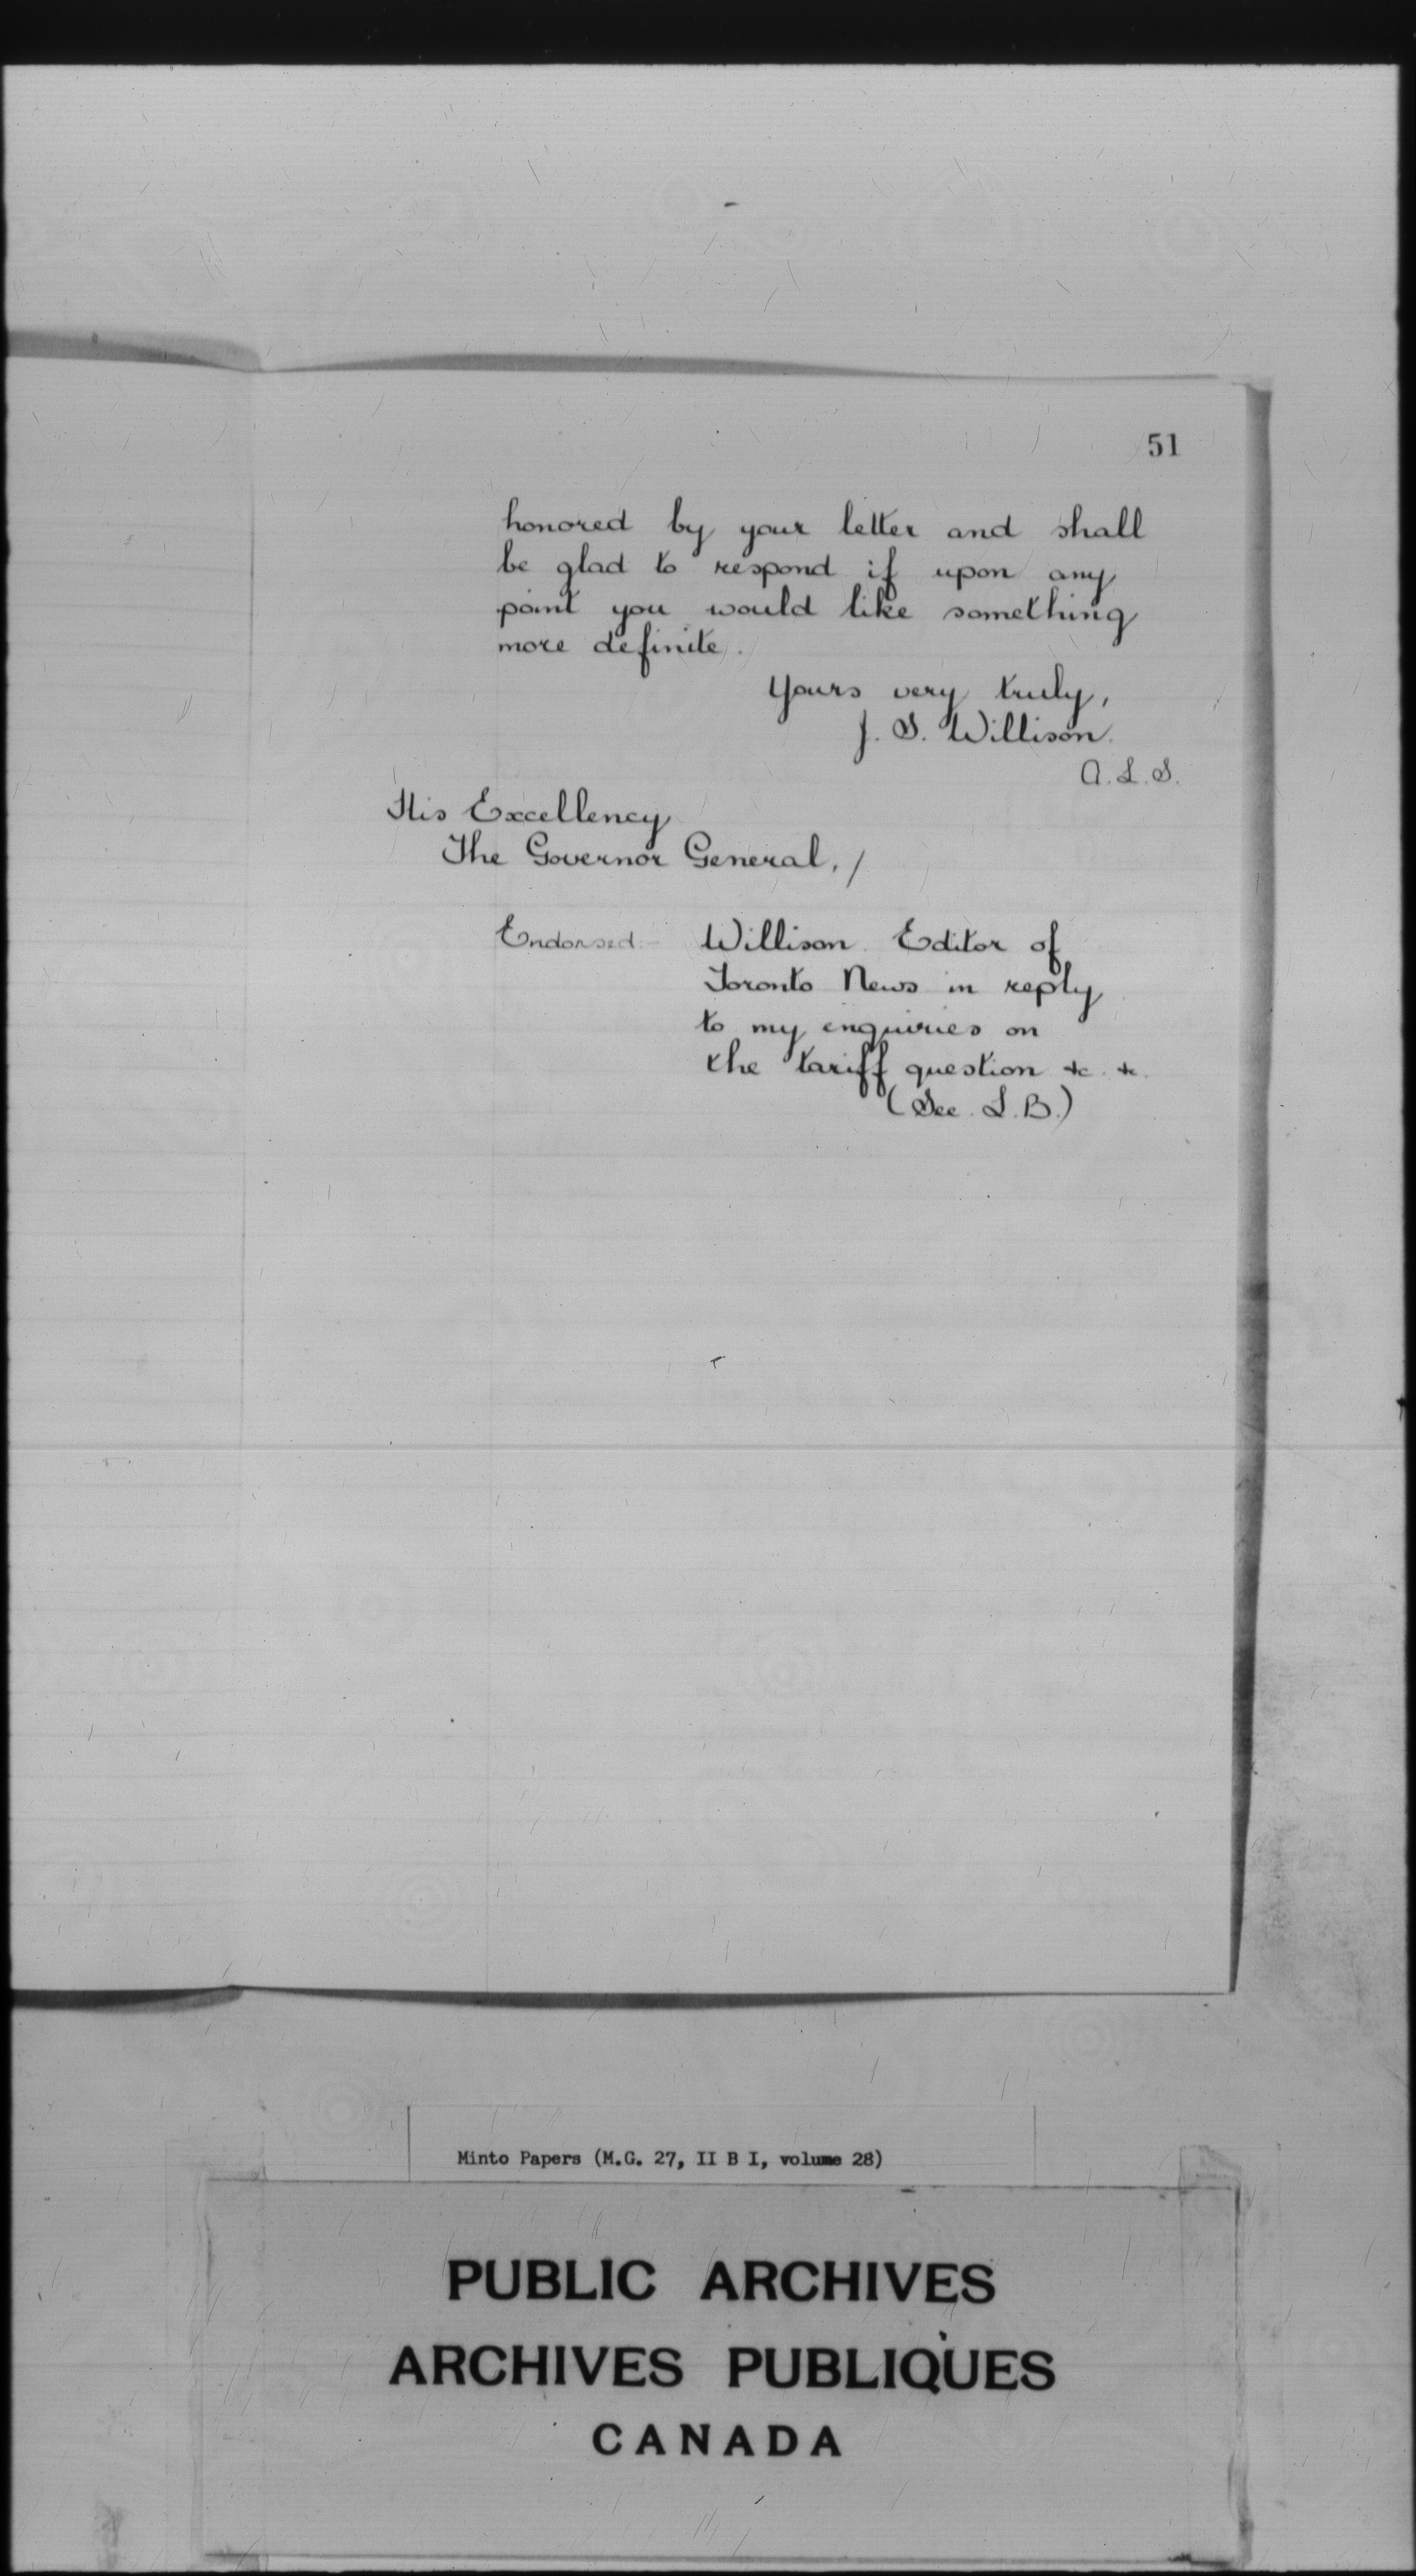 51
honored by your letter and shall
be glad to respond if upon any
point you would like something
more definite.
Yours very truly,
J. S. Willison.
A.L.S.
His Excellency
The Governor General,/
Endorsed:- Willison Editor of
Toronto News in reply
to my enquiries on
the tariff question &c. &c.
(See L.B.)
Minto Papers (M.G. 27, II B I, volume 28)
PUBLIC ARCHIVES
ARCHIVES PUBLIQUES
CANADA